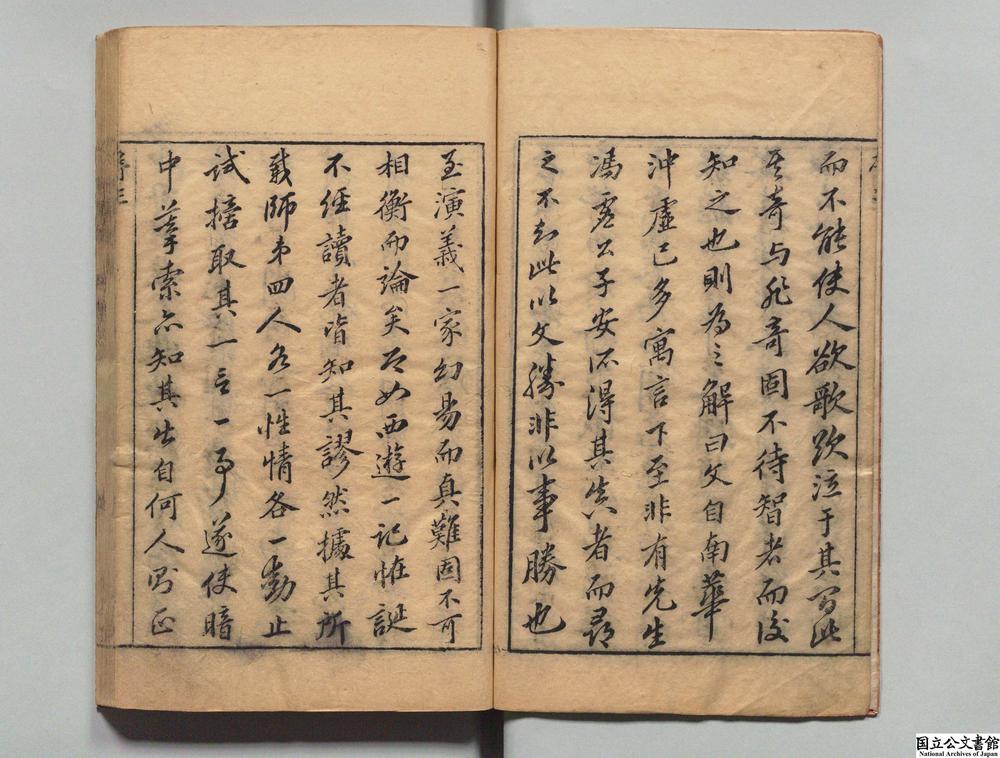 而不能使人欲歌欲泣于其間此
其奇与非奇固不待智者而後
知之也則為之解曰文自南華
沖虛已多寓言下至非有先生
馮虛公子安所得其真者而尋
之不知此以文勝非以事勝也
至演義一家幻易而真難固不可
相衡而論矣即如西遊一記恠誕
不經讀者皆知其謬然據其所
載師弟四人各一性情各一動止
試摘取其一言一事遂使暗
中摹索亦知其出自何人則正
国立公文書館
National Archives of Japan